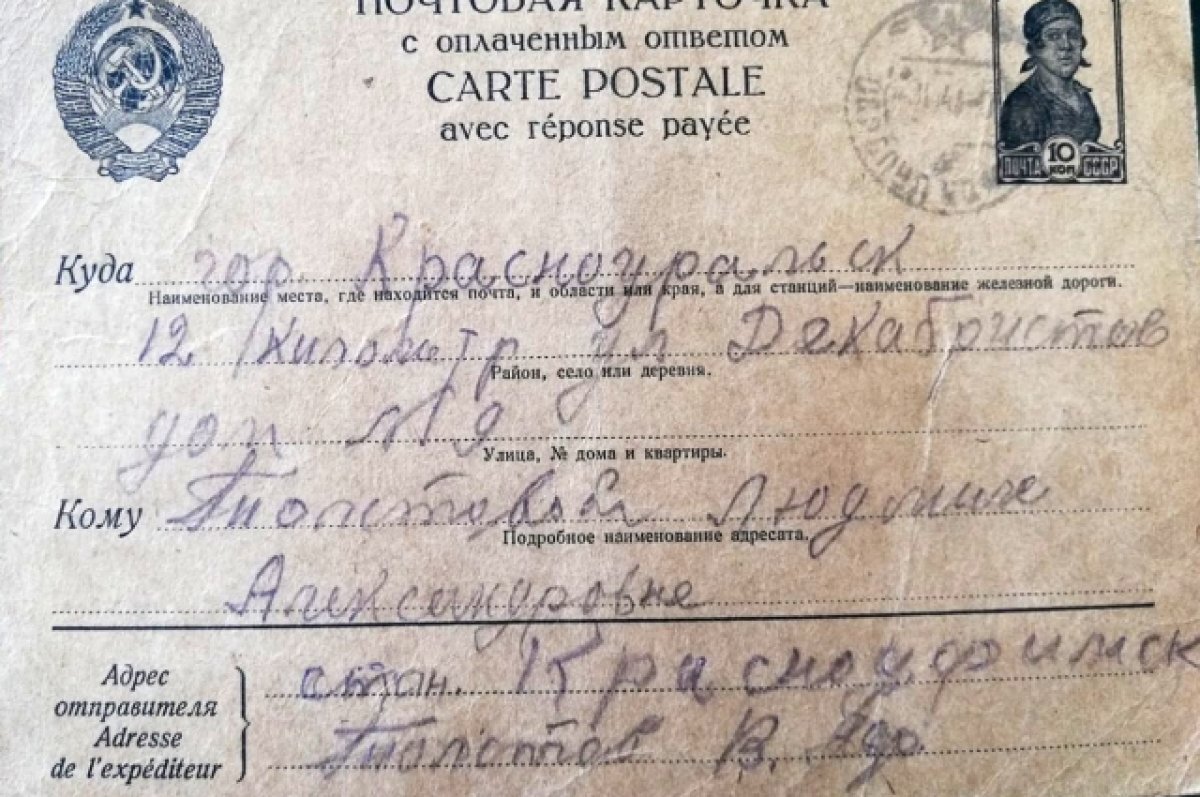 ПОЧТОВАЯ КАРТОЧКА
с оплаченным ответом
CARTE POSTALE
avec réponse payée
ПОЧТА 10 КОП СССР
Куда гор. Красноуральск
Наименование места, где находится почта, и области или края, а для станций—наименование железной дороги.
12 Километр ул Декабристов
Район, село или деревня.
дом №9
Улица, № дома и квартиры.
Кому Толстовой Людмиле
Подробное наименование адресата.
Александровне
Адрес отправителя
Adresse de l'expéditeur
стан. Красноуфимск
Толстов В.